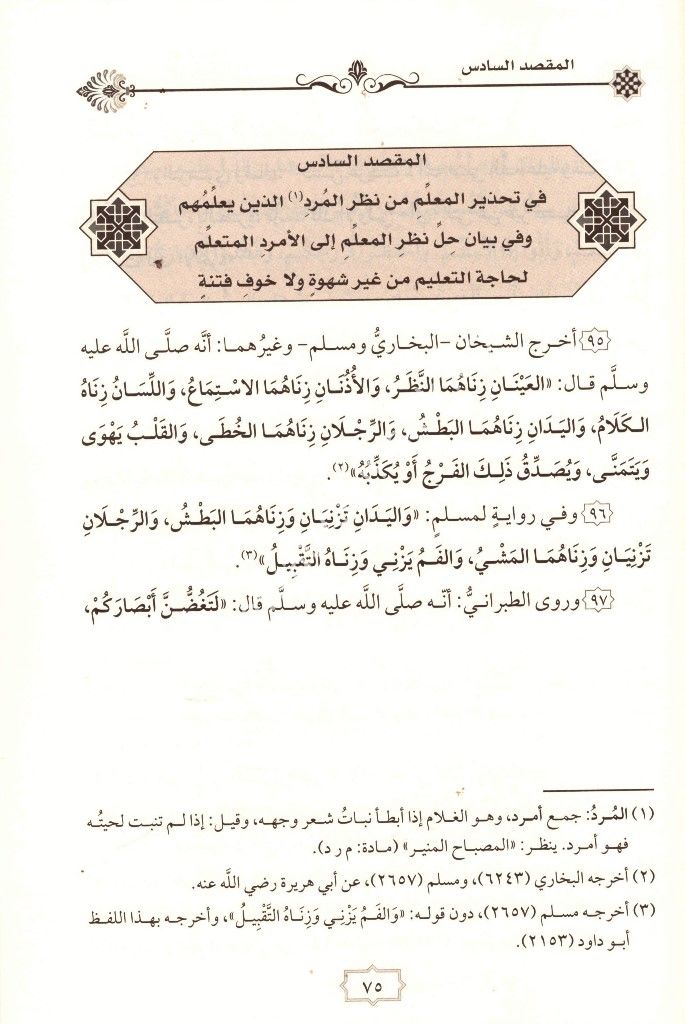 المقصد السادس
المقصد السادس
في تحذير المعلِّم من نظر المُردِ(١) الذين يعلِّمُهم
وفي بيان حِلِّ نظرِ المعلِّم إلى الأمردِ المتعلِّم
لحاجة التعليم من غير شهوةٍ ولا خوفِ فتنةٍ
٩٥ أخرج الشيخان -البخاريُّ ومسلم- وغيرُهما: أنَّه صلَّى اللَّه عليه
وسلَّم قال: «العَيْنَانِ زِنَاهُمَا النَّظَرُ، وَالأُذُنَانِ زِنَاهُمَا الاسْتِمَاعُ، وَاللِّسَانُ زِنَاهُ
الكَلَامُ، وَاليَدَانِ زِنَاهُمَا البَطْشُ، وَالرِّجْلَانِ زِنَاهُمَا الخُطَى، وَالقَلْبُ يَهْوَى
وَيَتَمَنَّى، وَيُصَدِّقُ ذَلِكَ الفَرْجُ أَوْ يُكَذِّبُهُ»(٢).
٩٦ وفي روايةٍ لمسلمٍ: «وَاليَدَانِ تَزْنِيَانِ وَزِنَاهُمَا البَطْشُ، وَالرِّجْلَانِ
تَزْنِيَانِ وَزِنَاهُمَا المَشْيُ، وَالفَمُ يَزْنِي وَزِنَاهُ التَّقْبِيلُ»(٣).
٩٧ وروى الطبرانيُّ: أنّه صلَّى اللَّه عليه وسلَّم قال: «لَتَغُضُّنَّ أَبْصَارَكُمْ،
(١) المُردُ: جمع أمرد، وهو الغلام إذا أبطأ نباتُ شعر وجهه، وقيل: إذا لم تنبت لحيتُه
فهو أمرد. ينظر: «المصباح المنير» (مادة: م ر د).
(٢) أخرجه البخاري (٦٢٤٣)، ومسلم (٢٦٥٧)، عن أبي هريرة رضي اللَّه عنه.
(٣) أخرجه مسلم (٢٦٥٧)، دون قوله: «وَالفَمُ يَزْنِي وَزِنَاهُ التَّقْبِيلُ»، وأخرجه بهذا اللفظ
أبو داود (٢١٥٣).
٧٥